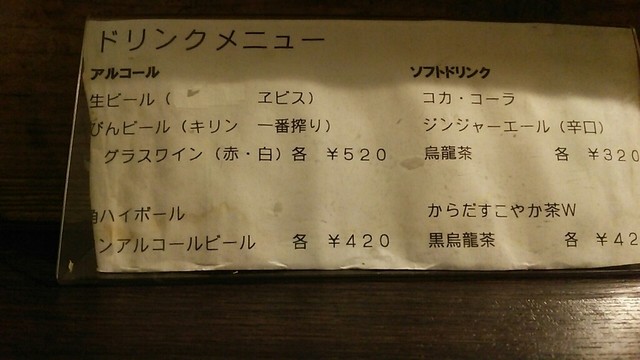 ドリンクメニュー
アルコール
生ビール（ ヱビス）
びんビール（キリン 一番搾り）
グラスワイン（赤・白）各 ￥520
角ハイボール
ンアルコールビール 各 ￥420
ソフトドリンク
コカ・コーラ
ジンジャーエール（辛口）
烏龍茶 各 ￥320
からだすこやか茶W
黒烏龍茶 各 ￥42